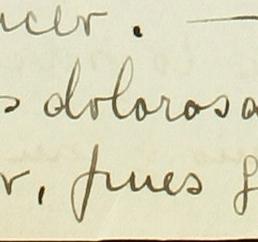 ucer. —
s dolorosa
r, pues g